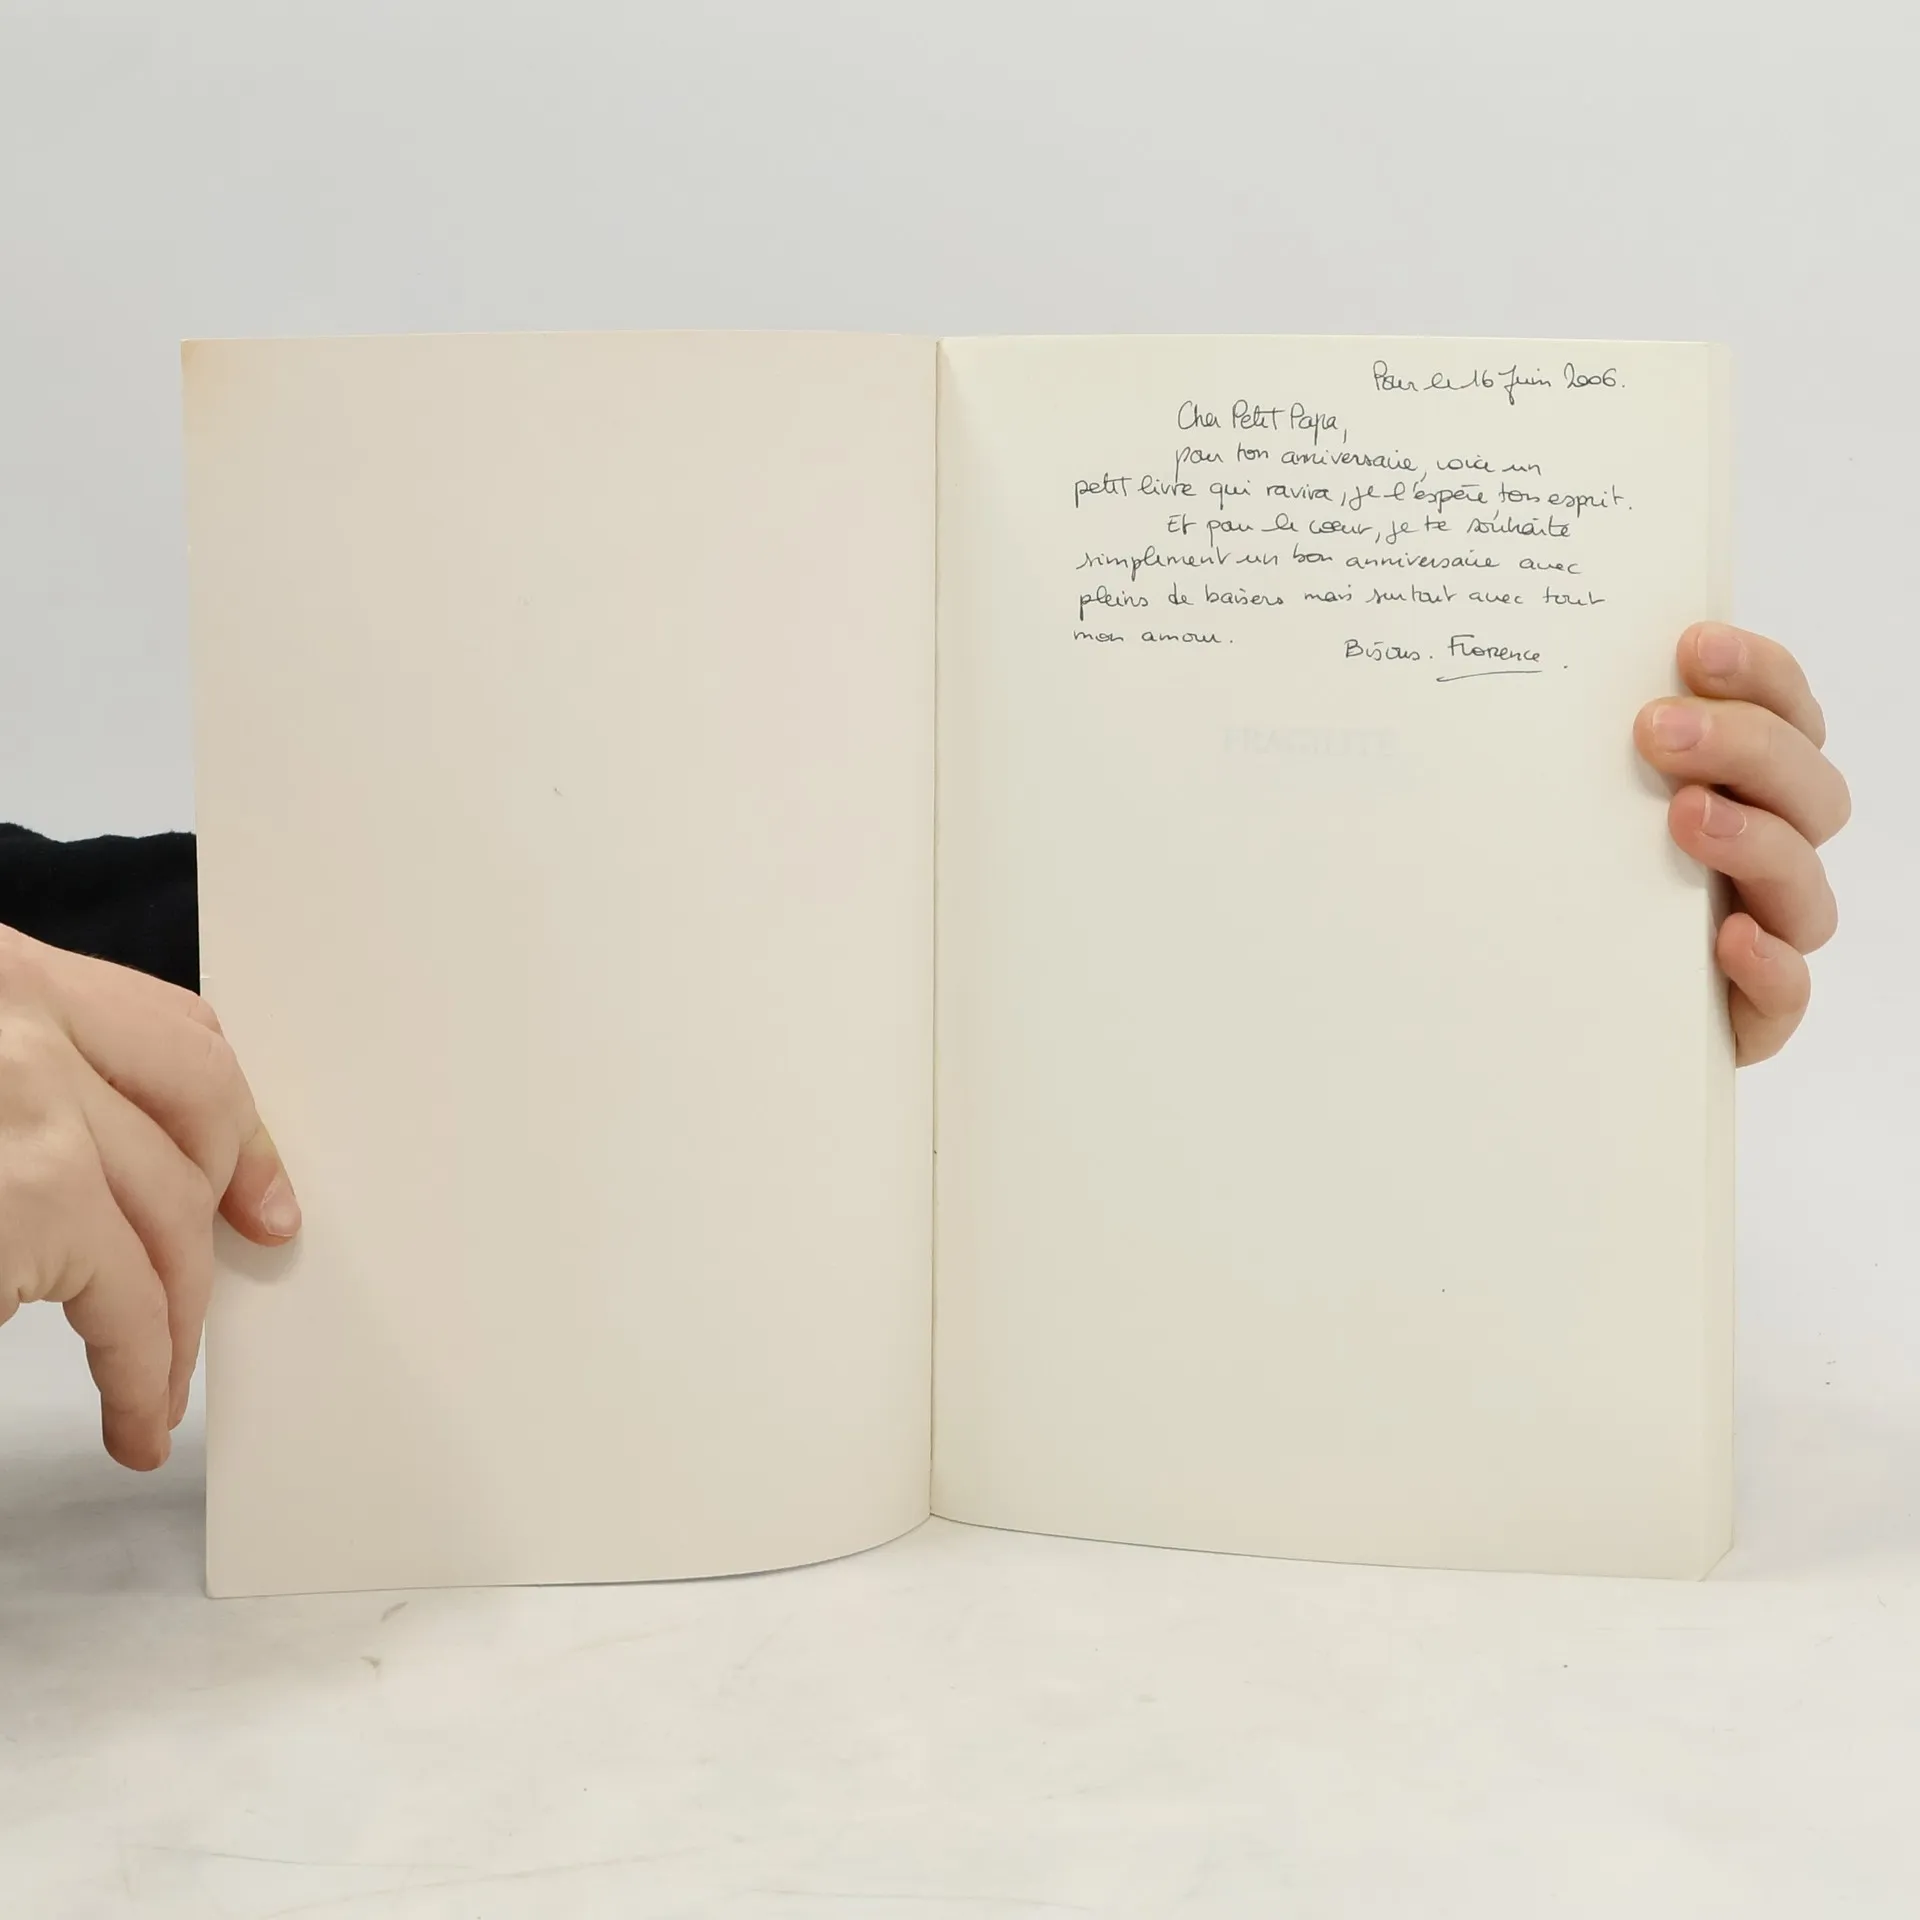 Pour le 16 Juin 2006.
Cher Petit Papa,
pour ton anniversaire, voici un
petit livre qui ravira, je l'espère ton esprit.
Et pour le coeur, je te souhaite
simplement un bon anniversaire avec
pleins de baisers mais surtout avec tout
mon amour.
Bisous. Florence.
FRAGILITÉ